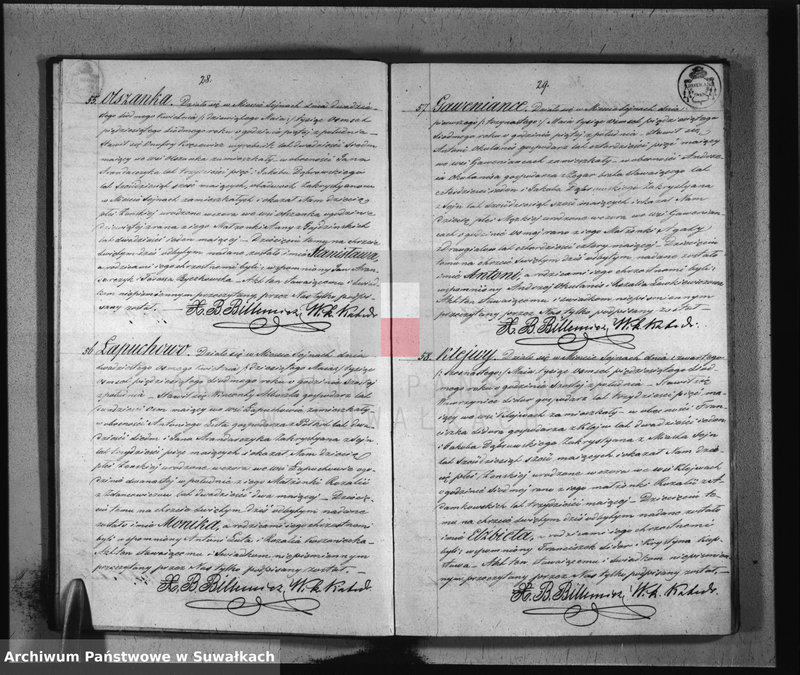 28.
55. Olszanka. Działo się w Mieście Sejnach dnia Dwudzie-
stego siódmego Kwietnia / Dziewiątego Maja / tysiąc ośmset
pięćdziesiątego siódmego roku o godzinie piątej z południa –
Stawił się wyrobnik lat dwadzieścia siedm
mający we wsi Olszanka zamieszkały w obecności Jana
Franaszczyka lat trzydzieści pięć i Jakuba Dąbrowskiego
lat sześćdziesiąt sześć mających, obudwóch Zakrystyanów
w Mieście Sejnach zamieszkałych i okazał Nam dziecię
płci Żeńskiej urodzone wczora we wsi Olszanka o godzinie
dziewiątej zrana z jego Małżonki Anny z
lat dwadzieścia siedm mającej – Dziecięciu temu na chrzcie
świętym dziś odbytym nadane zostało imię Stanisława,
a rodzicami jego chrzestnemi byli: wspomniony Jan Fran-
aszczyk i Akt ten stawającemu i świad-
kom niepiśmiennym przeczytany przez Nas tylko podpi-
sany został. –
X. B. Billewicz W. K. Katedr.
56. Łapuchowo. Działo się w Mieście Sejnach dnia
dwudziestego ósmego Kwietnia / Dziesiątego Maja / tysiąc
ośmset pięćdziesiątego siódmego roku o godzinie szóstej
z południa – Stawił się Wincenty gospodarz lat
trzydzieści ośm mający we wsi Łapuchowie zamieszkały
w obecności Antoniego Luto gospodarza z lat dwa-
dzieścia siedm i Jana Franaszczyka Zakrystyana z Sejn
lat trzydzieści pięć mających i okazał Nam dziecię
płci Żeńskiej urodzone wczora we wsi Łapuchowie o go-
dzinie dwunastej w południe z jego Małżonki Rozalii
z lat dwadzieścia dwa mającej – Dziecię-
ciu temu na chrzcie świętym dziś odbytym nadane
zostało imię Monika, a rodzicami jego chrzestnemi
byli: wspomniony Antoni Luto i Rozalia
Akt ten stawającemu i świadkom niepiśmiennym
przeczytany przez Nas tylko podpisany został. –
X. B. Billewicz W. K. Katedr.
29.
57. Gaweniańce. Działo się w Mieście Sejnach dnia
pierwszego / Trzynastego / Maja tysiąc ośmset pięćdziesiątego
siódmego roku o godzinie piątej z południa – Stawił się
Antoni Okulanis gospodarz lat czterdzieści pięć mający
we wsi Gaweniańcach zamieszkały – w obecności Andrze-
ja Okulanisa gospodarza lat
czterdzieści siedm i Jakuba Dąbrowskiego Zakrystyana
z Sejn lat sześćdziesiąt sześć mających i okazał Nam
dziecię płci Męskiej urodzone wczora we wsi Gawenian-
cach o godzinie ósmej rano z jego Małżonki Agaty
z lat czterdzieści cztery mającej. – Dziecięciu
temu na chrzcie świętym dziś odbytym nadane zostało
imię Antoni, a rodzicami jego chrzestnemi byli:
wspomniony Andrzej Okulanis i Rozalia
Akt ten stawającemu i świadkom niepiśmiennym
przeczytany przez Nas tylko podpisany został –
X. B. Billewicz W. K. Katedr.
58. Klejwy. Działo się w Mieście Sejnach dnia czwartego
/ Szesnastego / Maja tysiąc ośmset pięćdziesiątego siód-
mego roku o godzinie szóstej z południa – Stawił się
Wawrzyniec gospodarz lat trzydzieści pięć ma-
jący we wsi Klejwach zamieszkały – w obecności Fran-
ciszka gospodarza z Klejw lat dwadzieścia siedm
i Jakuba Dąbrowskiego Zakrystyana z Miasta Sejn
lat sześćdziesiąt sześć mających i okazał Nam dzie-
cię płci Żeńskiej urodzone wczora we wsi Klejwach
o godzinie siódmej rano z jego małżonki Rozalii z A-
damkowskich lat trzydzieści mającej. – Dziecięciu te-
mu na chrzcie świętym dziś odbytym nadane zostało
imię Elżbieta, a rodzicami jego chrzestnemi
byli: wspomniony Franciszek i Krystyna
Akt ten stawającemu i świadkom niepiśmien-
nym przeczytany przez Nas tylko podpisany został –
X. B. Billewicz W. K. Katedr.
Archiwum Państwowe w Suwałkach